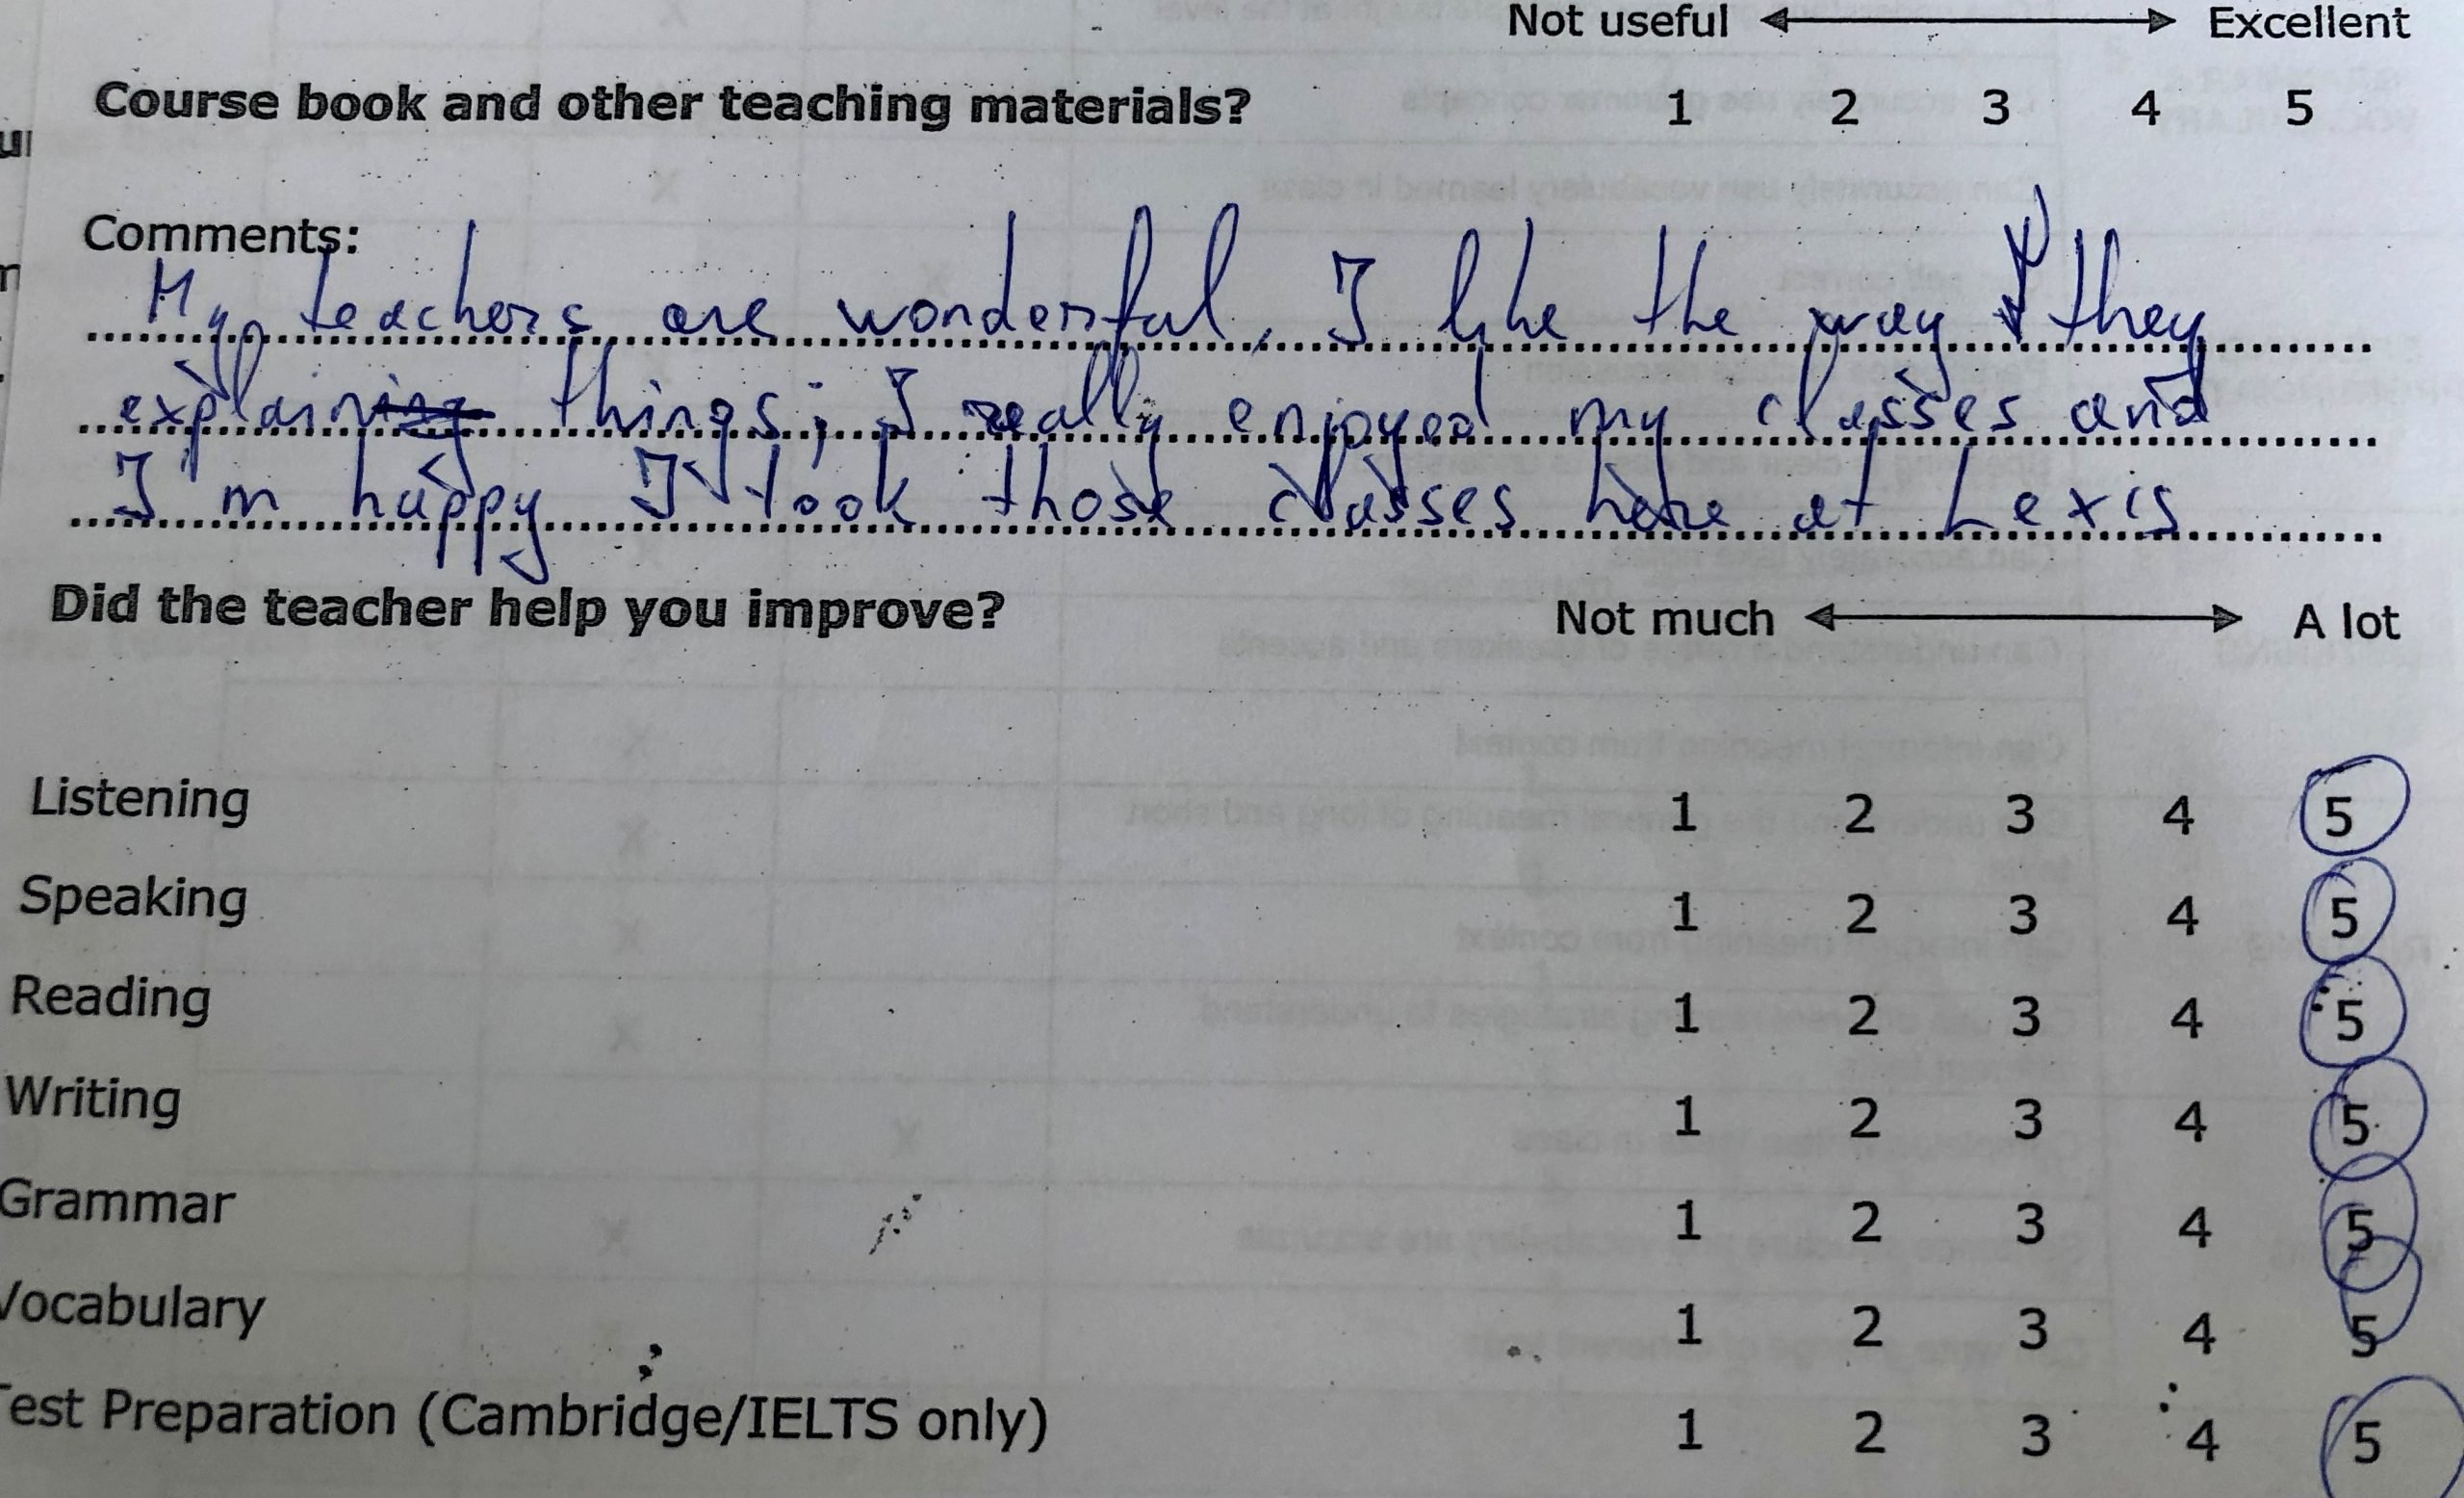 Not useful Excellent
Course book and other teaching materials? 1 2 3 4 5
Comments:
My teachers are wonderful, I like the way they
explain things; I really enjoyed my classes and
I'm happy I took those classes here at Lexis
Did the teacher help you improve? Not much A lot
Listening 1 2 3 4 5
Speaking 1 2 3 4 5
Reading 1 2 3 4 5
Writing 1 2 3 4 5
Grammar 1 2 3 4 5
Vocabulary 1 2 3 4 5
Test Preparation (Cambridge/IELTS only) 1 2 3 4 5